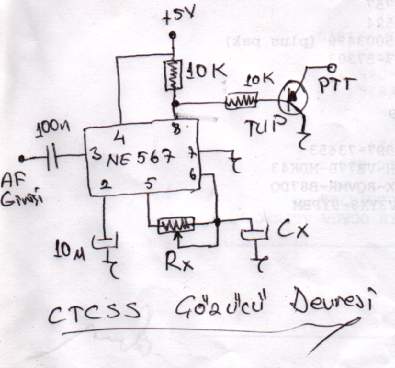 +5V
10K
10K
PTT
TUP
100n
4
8
3
NE567
7
6
2
5
AF
Girişi
10µ
Rx
Cx
CTCSS Çözücü Devresi